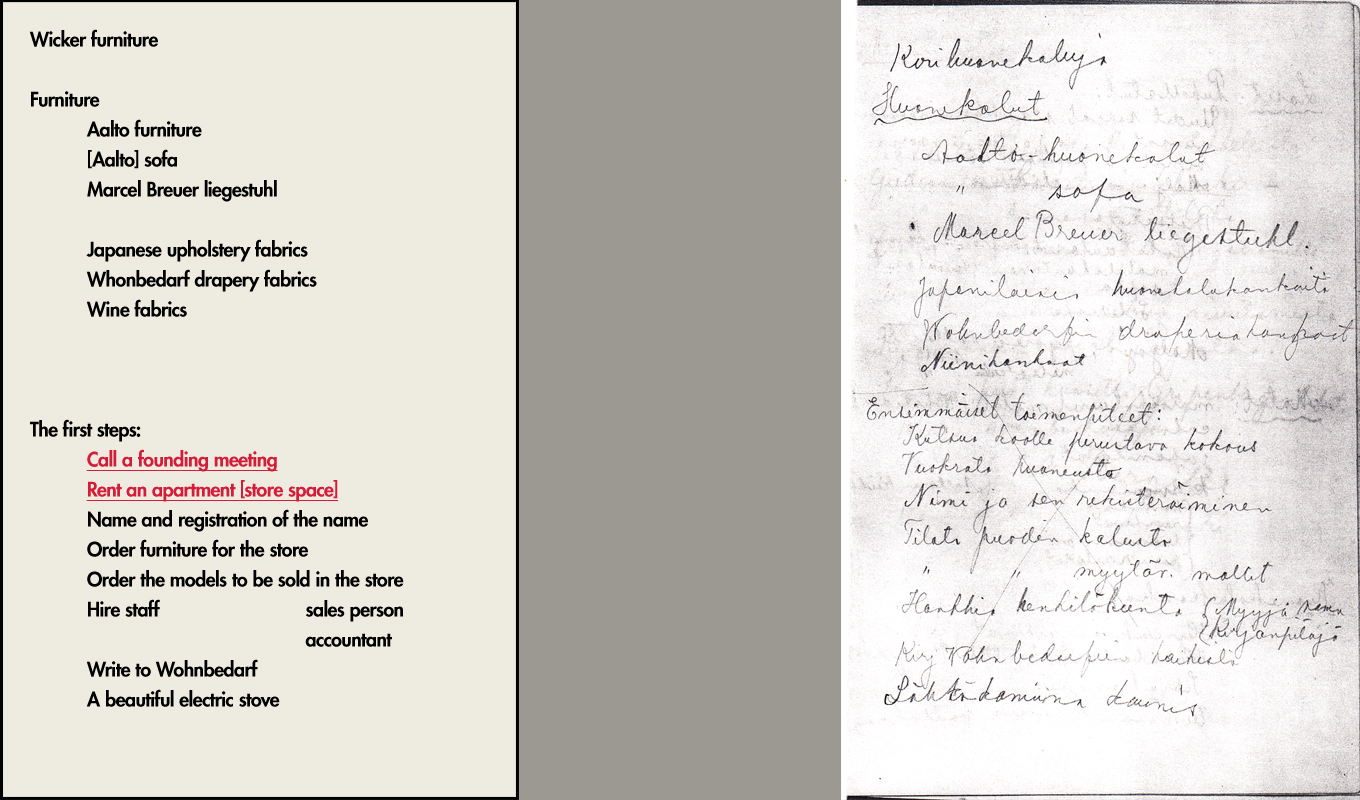 Wicker furniture
Furniture
Aalto furniture
[Aalto] sofa
Marcel Breuer liegestuhl
Japanese upholstery fabrics
Whonbedarf drapery fabrics
Wine fabrics
The first steps:
Call a founding meeting
Rent an apartment [store space]
Name and registration of the name
Order furniture for the store
Order the models to be sold in the store
Hire staff sales person
accountant
Write to Wohnbedarf
A beautiful electric stove
Korihuonekaluja
Huonekalut
Aalto-huonekalut
" sofa
Marcel Breuer liegestuhl.
Japanilaisia huonekalukankaita
Wohnbedarfin draperiakankaat
Niinikankaat
Ensimmäiset toimenpiteet:
Kutsua koolle perustava kokous
Vuokrata huoneusto
Nimi ja sen rekisteröiminen
Tilata puodin kalusto
" " myytäv. mallit
Hankkia henkilökunta { Myyjä
Kirjanpitäjä
Kirj Wohnbedarfin
Sähkökamiina kaunis